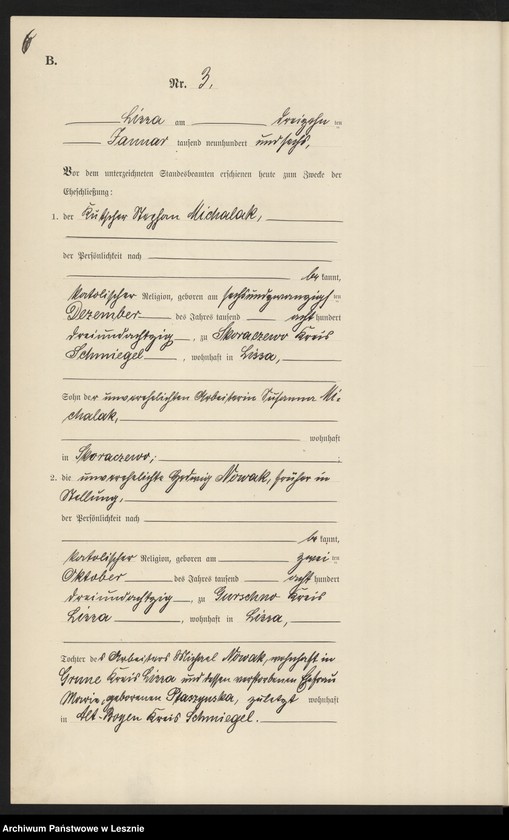 6
B.
Nr. 3.
Lissa am dreizehn ten
Januar tausend neunhundert und sechs,
Vor dem unterzeichneten Standesbeamten erschienen heute zum Zwecke der
Eheschließung:
1. der Kutscher Stephan Michalak,
der Persönlichkeit nach
be kannt,
katolischer Religion, geboren am sechsundzwanzigs ten
Dezember des Jahres tausend acht hundert
dreiundachtzig, zu Skoraczewo Kreis
Schmiegel, wohnhaft in Lissa,
Sohn der unverehelichten Arbeiterin Susanna Mi-
chalak,
wohnhaft
in Skoraczewo;
2. die unverehelichte Hedwig Nowak, früher in
Stellung,
der Persönlichkeit nach
be kannt,
katolischer Religion, geboren am zwei ten
Oktober des Jahres tausend acht hundert
dreiundachtzig, zu Gurschno Kreis
Lissa, wohnhaft in Lissa,
Tochter des Arbeiters Michael Nowak, wohnhaft in
Grune Kreis Lissa und dessen verstorbenen Ehefrau
Marie, geborenen Ptaszynska, zuletzt wohnhaft
in Alt-Bogen Kreis Schmiegel.
Archiwum Państwowe w Lesznie